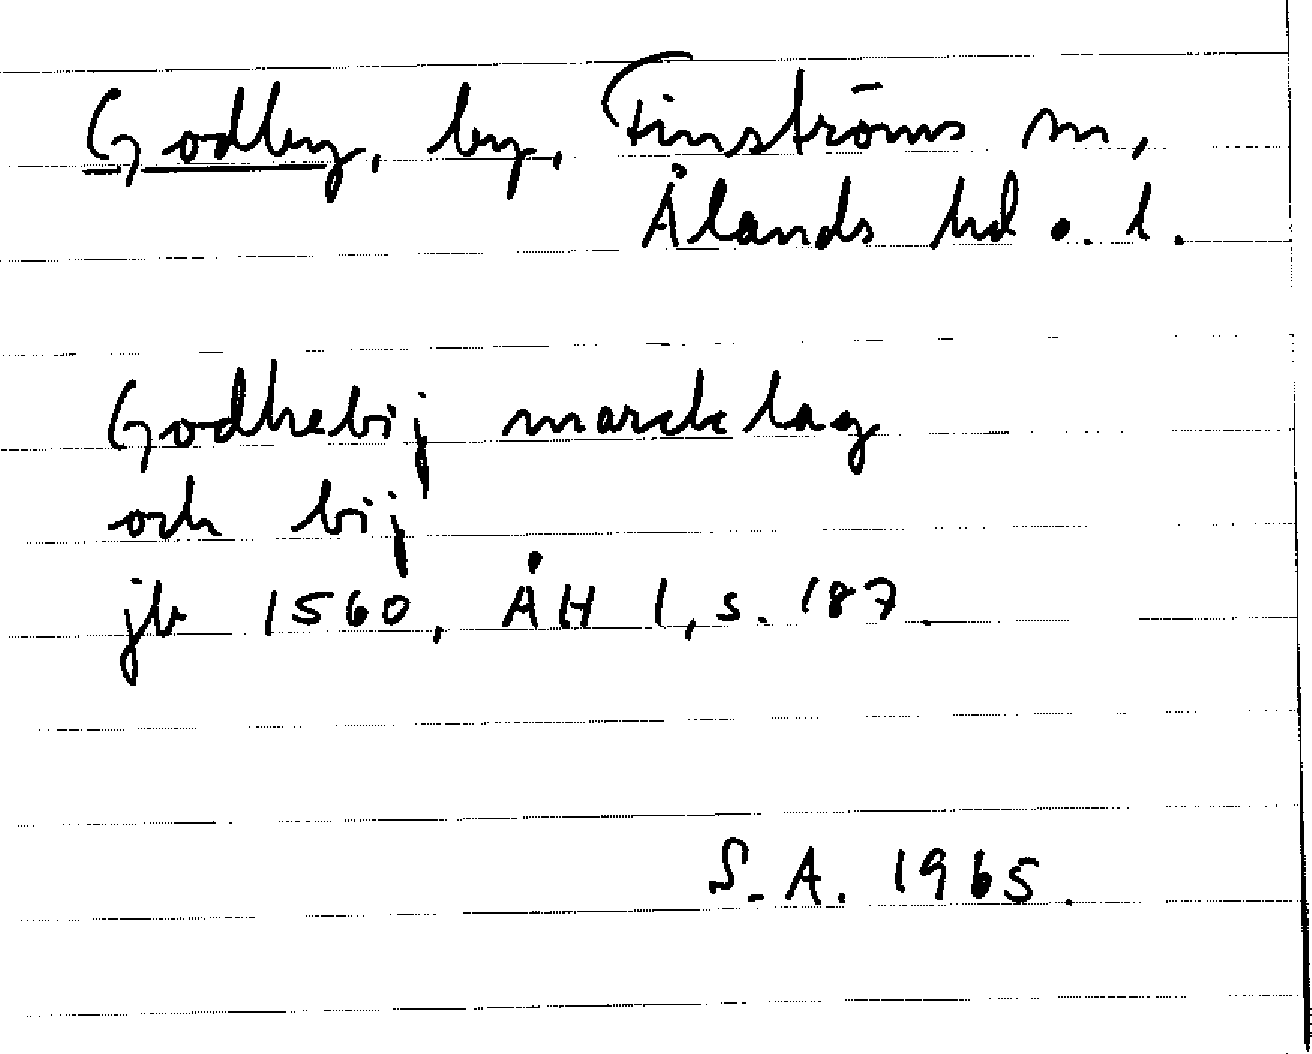 Godby, by, Finströms sn,
Ålands hd o. l.
Godhebij marcklag
och bij
jb 1560, ÅH 1, s. 187.
S.A. 1965.